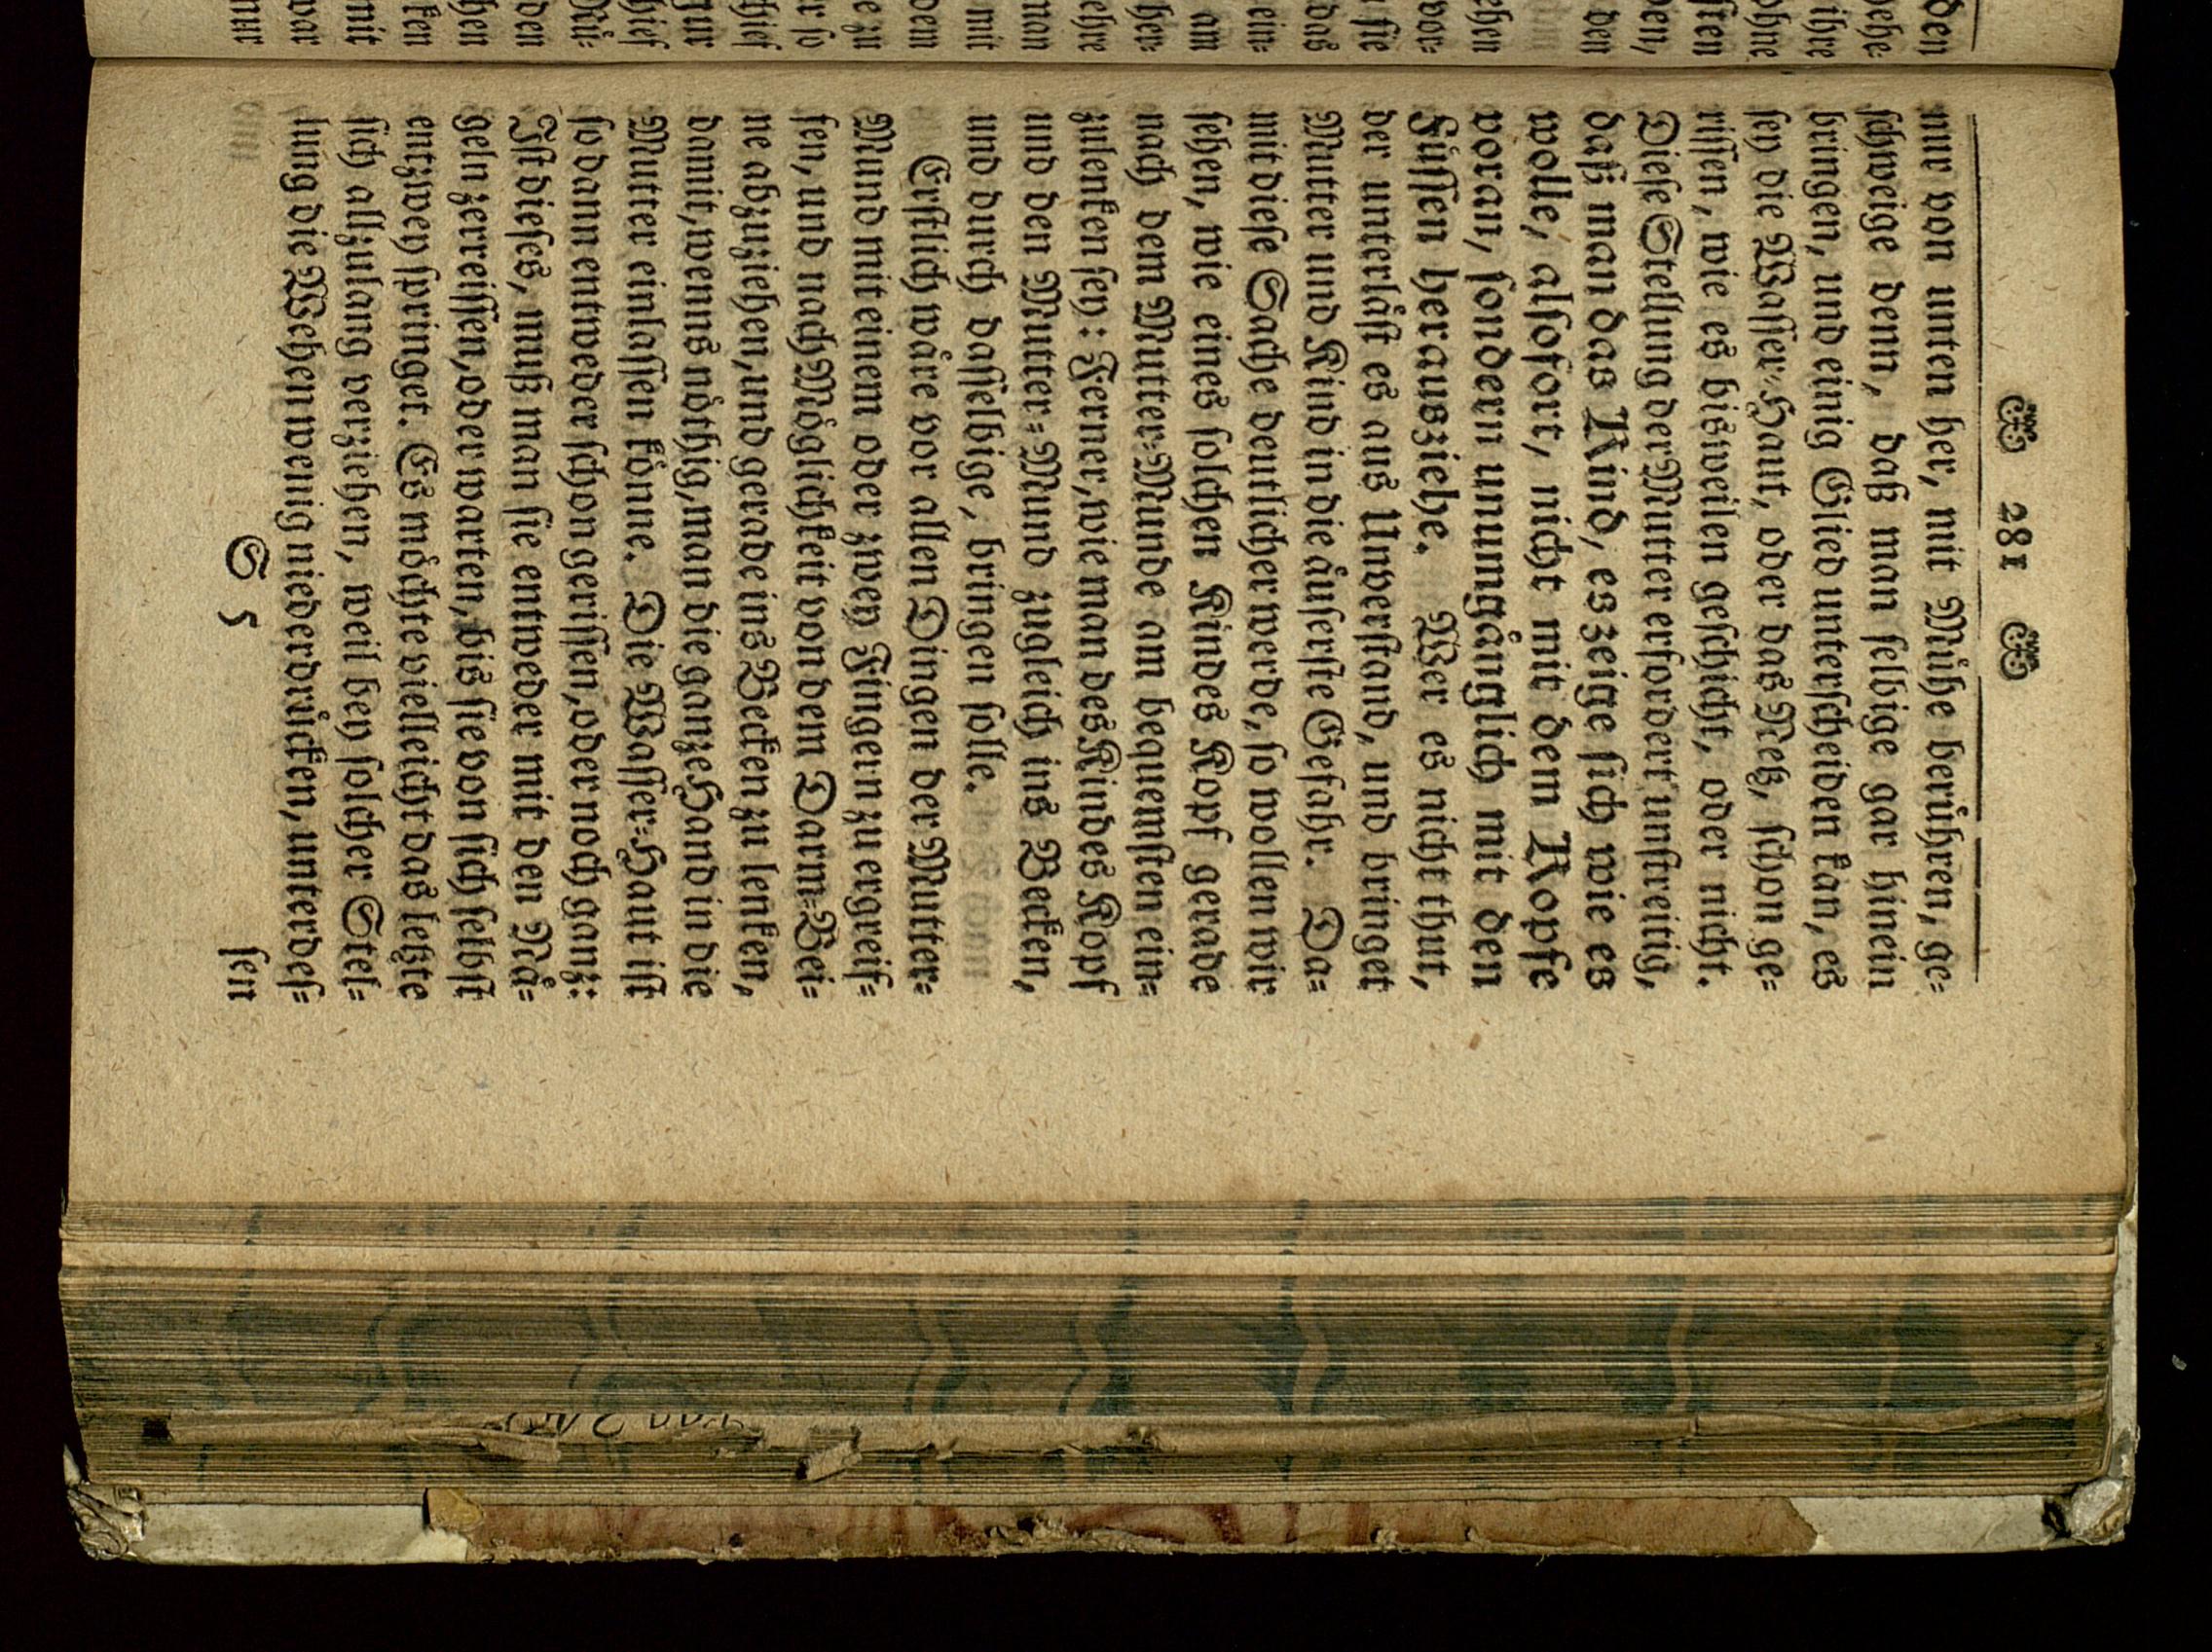 281
nur von unten her, mit Mühe berühren, ge=
schweige denn, daß man selbige gar hinein
bringen, und einig Glied unterscheiden kan, es
sey die Wasser=Haut, oder das Netz, schon ge=
rissen, wie es bisweilen geschicht, oder nicht.
Diese Stellung der Mutter erfordert unstreitig,
daß man das Kind, es zeige sich wie es
wolle, alsofort, nicht mit dem Kopfe
voran, sondern unumgänglich mit den
Füssen herausziehe. Wer es nicht thut,
der unterläst es aus Unverstand, und bringet
Mutter und Kind in die äuserste Gefahr. Da=
mit diese Sache deutlicher werde, so wollen wir
sehen, wie eines solchen Kindes Kopf gerade
nach dem Mutter=Munde am bequemsten ein=
zulenken sey: Ferner, wie man des Kindes Kopf
und den Mutter=Mund zugleich ins Becken,
und durch dasselbige, bringen solle.
Erstlich wäre vor allen Dingen der Mutter=
Mund mit einem oder zwey Fingern zu ergreif=
fen, und nach Möglichkeit von dem Darm=Bei=
ne abzuziehen, und gerade ins Becken zu lenken,
damit, wenns nöthig, man die ganze Hand in die
Mutter einlassen könne. Die Wasser=Haut ist
sodann entweder schon gerissen, oder noch ganz:
Ist dieses, muß man sie entweder mit den Nä=
geln zerreissen, oder warten, bis sie von sich selbst
entzwey springet. Es möchte vielleicht das letzte
sich allzulang verziehen, weil bey solcher Stel=
lung die Wehen wenig niederdrücken, unterdes=
S 5
sen